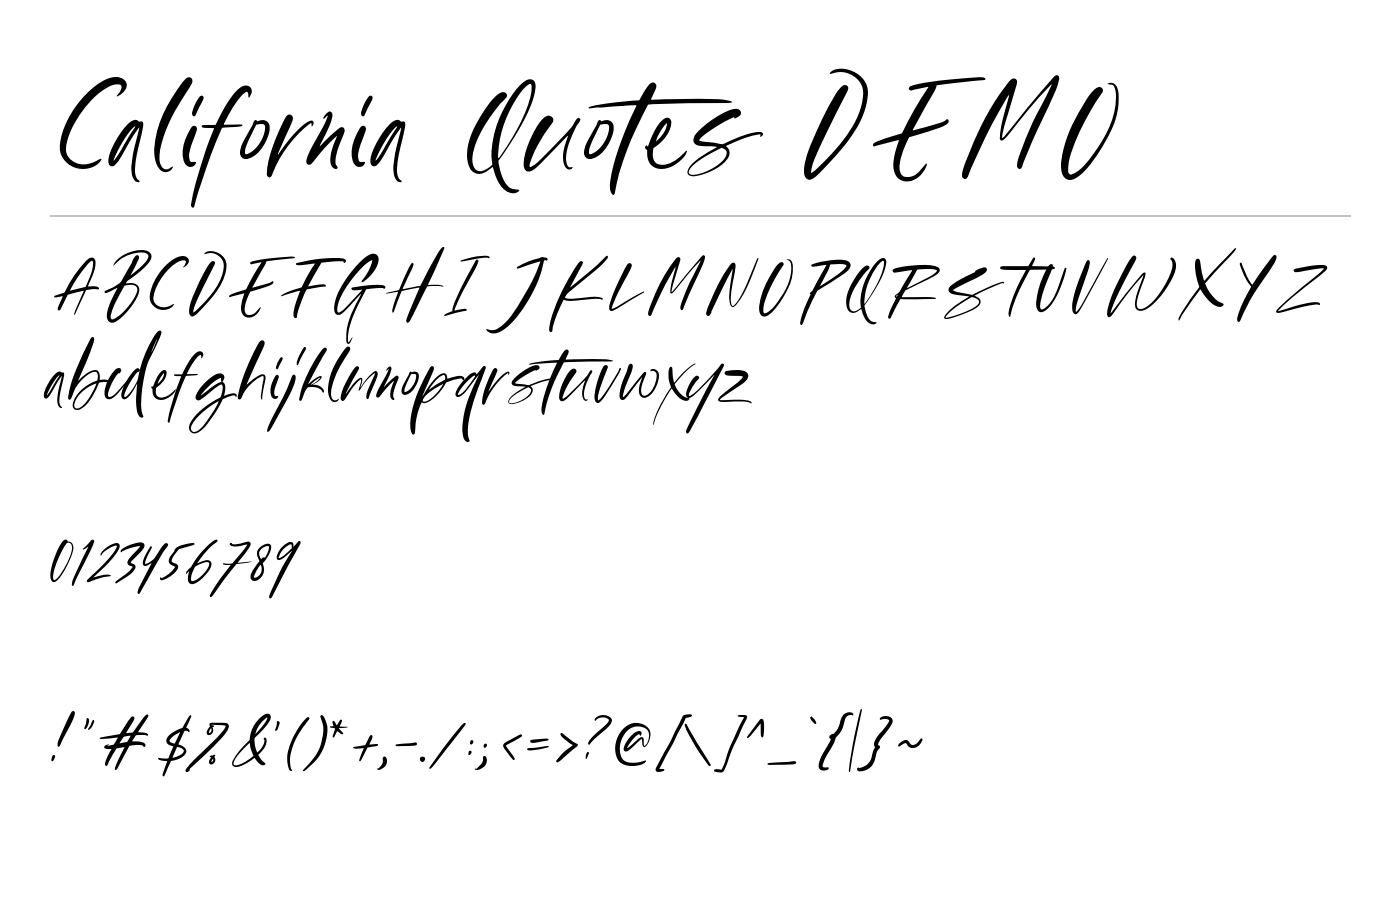 California Quotes DEMO
ABCDEFGHIJKLMNOPQRSTUVWXYZ
abcdefghijklmnopqrstuvwxyz
0123456789
!"#$%&'()*+,-./:;<=>?@[\]^_`{|}~